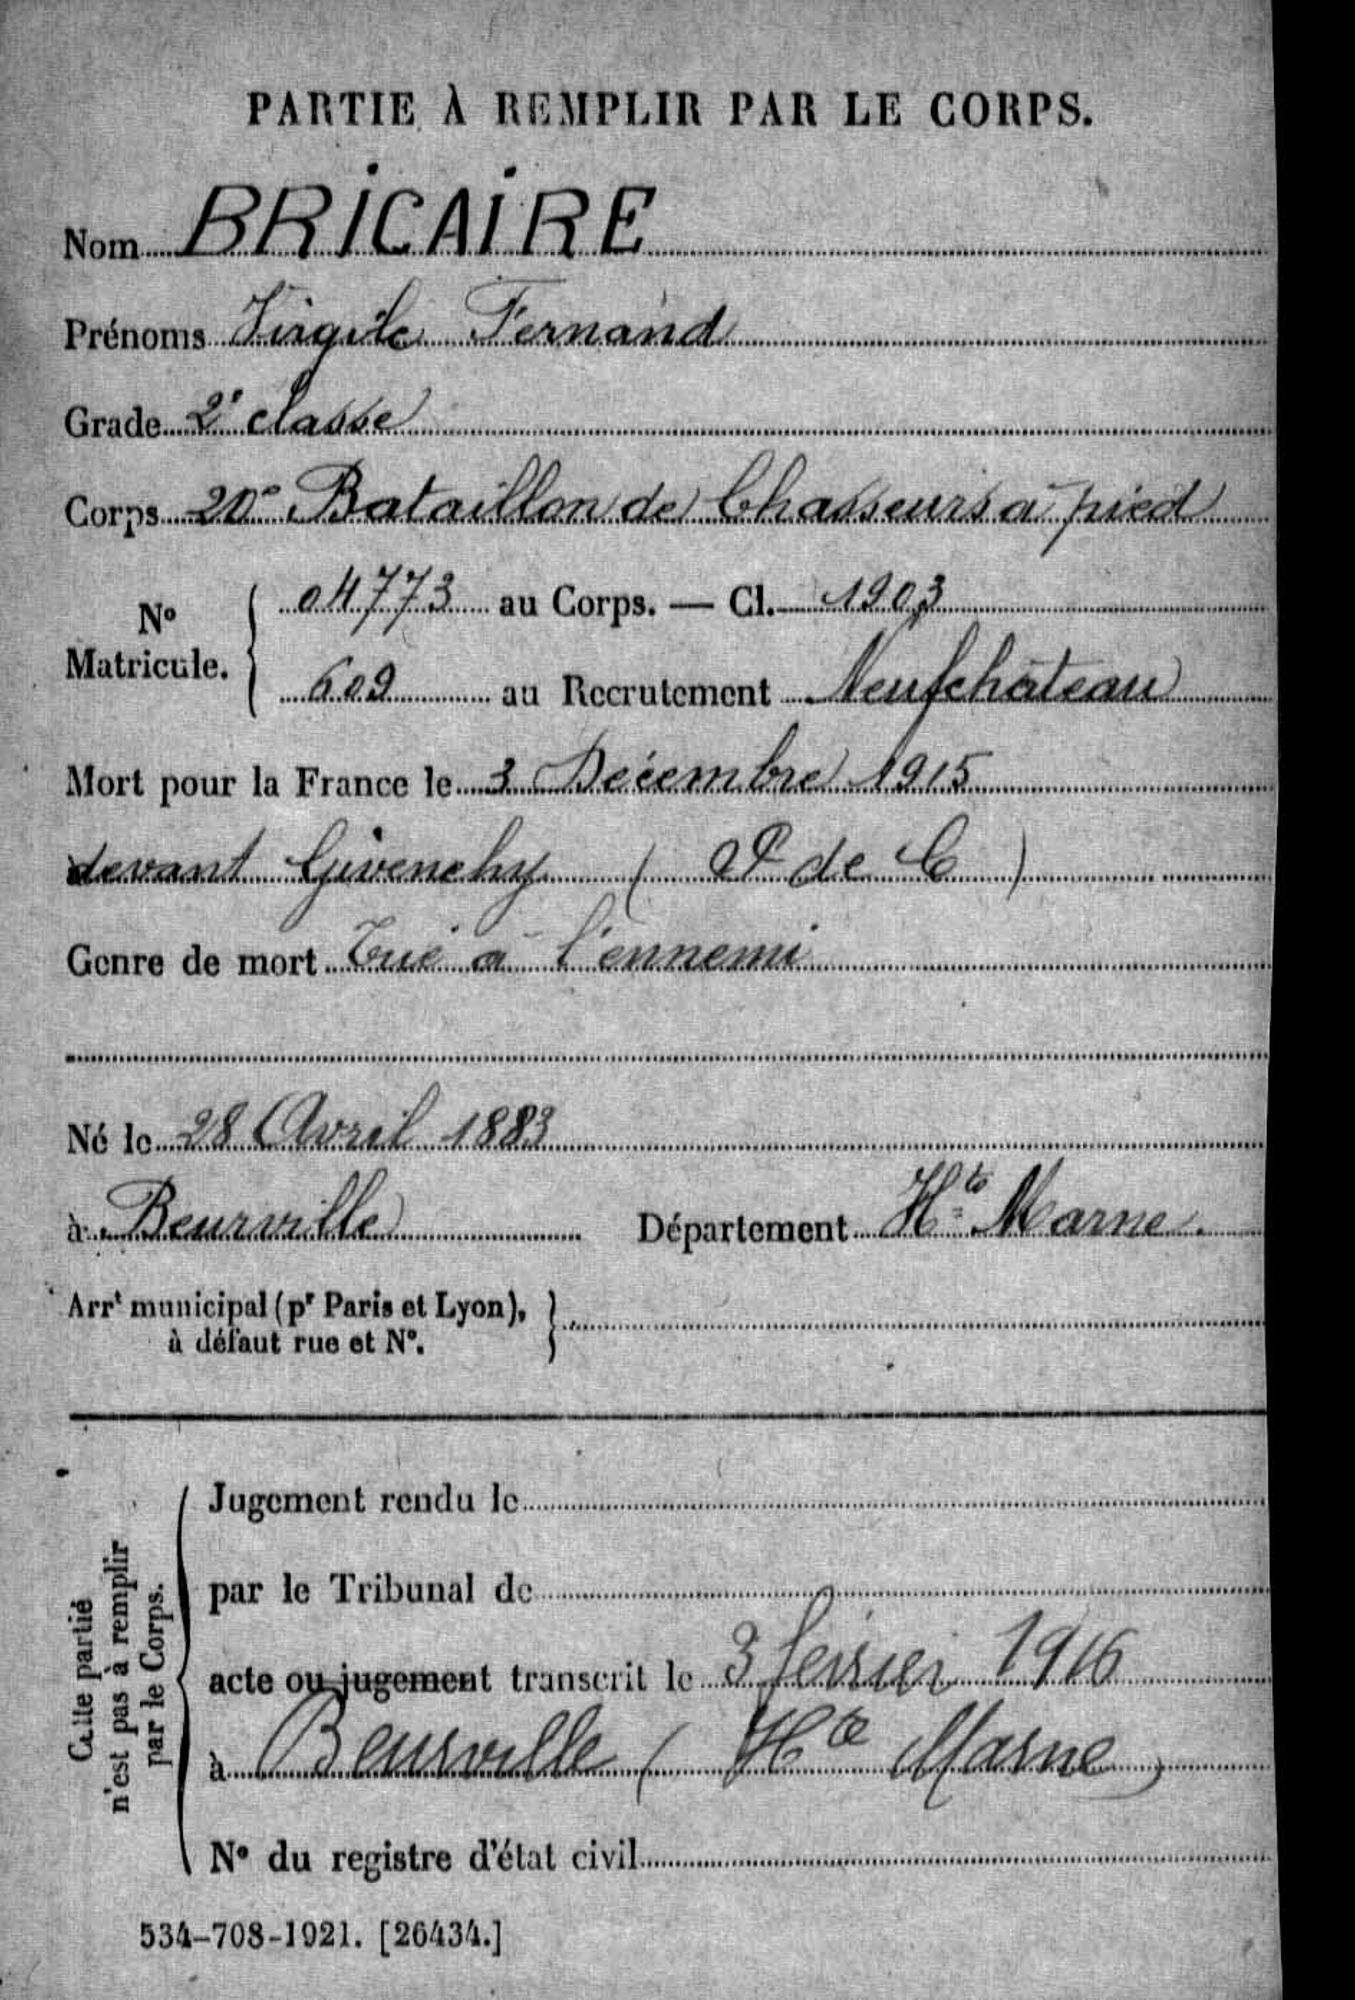 PARTIE À REMPLIR PAR LE CORPS.
Nom BRICAIRE
Prénoms Virgile Fernand
Grade 2e classe
Corps 20e Bataillon de Chasseurs à pied
No Matricule. { 04773 au Corps. — Cl. 1903
609 au Recrutement Neufchâteau
Mort pour la France le 3 Décembre 1915
devant Givenchy ( P de C )
Genre de mort Tué à l'ennemi
Né le 28 Avril 1883
à Beurville Département Hte Marne.
Arrt municipal (pr Paris et Lyon), }
à défaut rue et No.
Cette partie
n'est pas à remplir
par le Corps.
Jugement rendu le
par le Tribunal de
acte ou jugement transcrit le 3 février 1916
à Beurville (Hte Marne)
No du registre d'état civil
534-708-1921. [26434.]